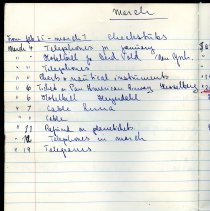 March
From Feb 25 - March 7 Checkstubs
March 4 Telephones in January
" " Hotelbill for Bert Vold New York
" " Telephones
" " Charts & nautical instruments
" 6 Ticket on Pan American Airway Hesselberg
" 6 Hotelbill Heyerdahl
" " Cable
" " Cable
" Refund on planetickets
" 12 Telephones in March
" 19 Telegrams